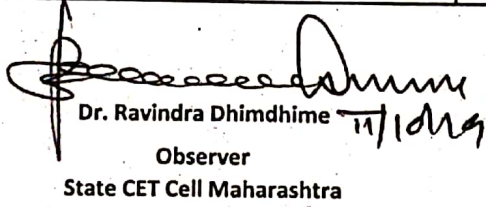 Dr. Ravindra Dhimdhime
Observer
State CET Cell Maharashtra